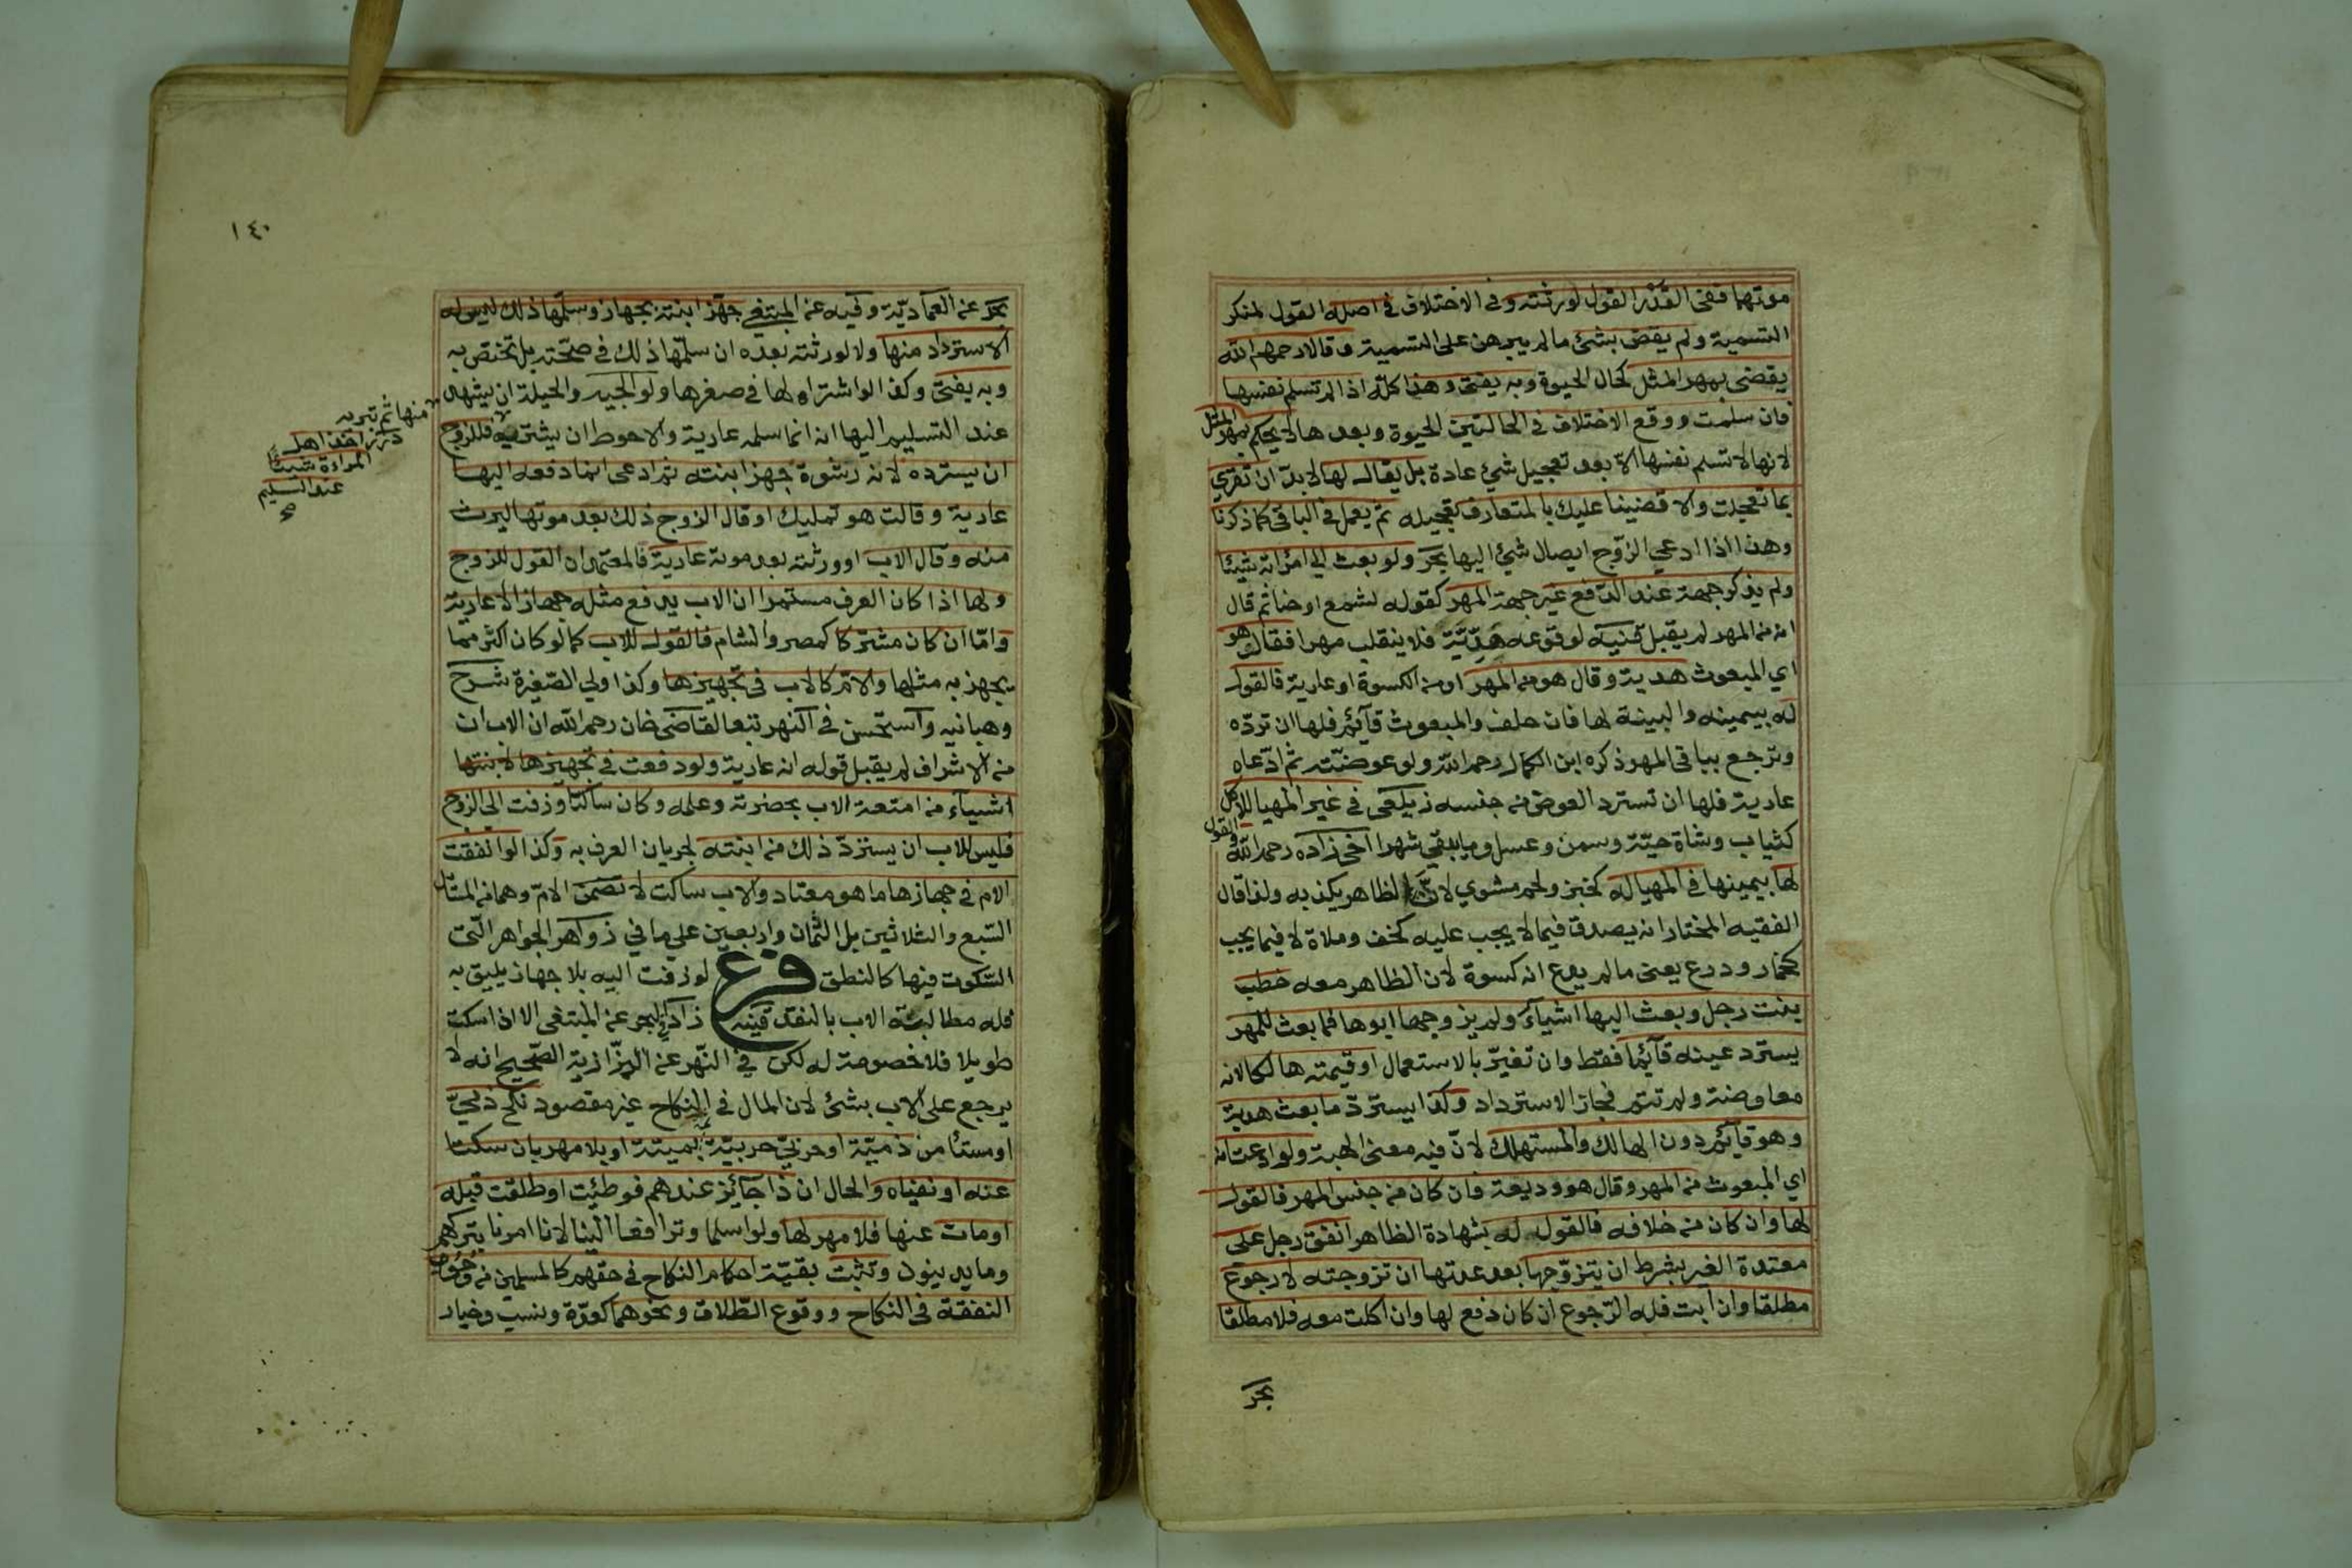 موتهما ففي القدر القول لورثته وفي الاختلاف في اصله القول لمنكر
التسمية ولم يقض بشئ مالم يبرهن على التسمية وقالا رحمهم الله
يقضى بمهر المثل كحال الحيوة وبه يفتى وهذا كله اذا لم تسلم نفسها
فان سلمت ووقع الاختلاف في الحالتين الحيوة وبعدها لا يحكم بمهر المثل
لانها لا تسلم نفسها الا بعد تعجيل شئ عادة بل يقال لها لا بد ان تقري
بما تعجلت والا قضينا عليك بالمتعارف تعجيله ثم يعمل في الباقي كما ذكرنا
وهذا اذا ادعي الزوج ايصال شئ اليها بحر ولو بعث الي امراته شيئا
ولم يذكر جهة عند الدفع غير جهة المهر كقوله لشمع او حنا ثم قال
انه من المهر لم يقبل قنيه لوقوعه هدية فلا ينقلب مهرا فقالت هو
اي المبعوث هدية وقال هو من المهر او من الكسوة او عارية فالقول
له بيمينه والبينة لها فان حلف والمبعوث قآئم فلها ان تردّه
وترجع بباقي المهر ذكره ابن الكمال رحمه الله ولو عوضته ثم ادّعاه
عارية فلها ان تسترد العوض من جنسه زيلعي في غير المهيا للاكل
كثياب وشاة حيّة وسمن وعسل وما يبقي شهرا اخي زاده رحمه الله والقول
لها بيمينها في المهيا له كخبز ولحم مشوي لان الظاهر يكذبه ولذا قال
الفقيه المختار انه يصدق فيما لا يجب عليه كخف وملاة لا فيما يجب
كخمار ودرع يعني مالم يدع انه كسوة لان الظاهر معه خطب
بنت رجل وبعث اليها اشيآء ولم يزوجها ابوها فما بعث للمهر
يسترد عينه قآئما فقط وان تغيّر بالاستعمال او قيمته هالكا لانه
معاوضة ولم تتم فجاز الاسترداد وكذا يستردّ ما بعث هدية
وهو قآئم دون الهالك والمستهلك لانّ فيه معنى الهبة ولو ادعت انه
اي المبعوث من المهر وقال هو وديعة فان كان من جنس المهر فالقول
لها وان كان من خلافه فالقول له بشهادة الظاهر انفق رجل على
معتدة الغير بشرط ان يتزوّجها بعد عدتها ان تزوجته لا رجوع
مطلقا وان ابت فله الرّجوع ان كان دفع لها وان اكلت معه فلا مطلقا
بحر
١٤٠
بحر عن العماديّة وفيه عن المبتغي جهّز ابنته بجهاز وسلمها ذلك ليس له
الاسترداد منها ولا لورثته بعده ان سلمها ذلك في صحّته بل تختص به
وبه يفتى وكذا لو اشتراه لها في صغرها ولوالجيه والحيلة ان يشهد
عند التسليم اليها انه انما سلمه عارية والاحوط ان يشتريه فللزوج
منها ثم تبريه
درر اخذ اهل
المراءة شيئا
عند التسليم
صح
ان يسترده لانه رشوة جهز ابنته ثم ادعى انما دفعه اليها
عارية وقالت هو تمليك او قال الزوج ذلك بعد موتها ليرث
منه وقال الاب او ورثته بعد موته عارية فالمعتمد ان القول للزوج
ولها اذا كان العرف مستمرا ان الاب يدفع مثله جهازا لا عارية
وامّا ان كان مشتركا كمصر والشام فالقول للاب كما لو كان اكثر مما
يجهز به مثلها والام كالاب في تجهيزها وكذا ولي الصغيرة شرح
وهبانيه واستحسن في النهر تبعا لقاضى خان رحمه الله ان الاب ان
من الاشراف لم يقبل قوله انه عارية ولو دفعت في تجهيزها لابنتها
اشيآء من امتعة الاب بحضرته وعلمه وكان ساكتا وزفت الي الزوج
فليس للاب ان يستردّ ذلك من ابنته لجريان العرف به وكذا لو انفقت
الام في جهازها ما هو معتاد والاب ساكت لا تضمن الامّ وهما من المسائل
السّبع والثلاثين بل الثمان واربعين علي ما في زواهر الجواهر الّتى
السّكوت فيها كالنطق فرع لو زفت اليه بلا جهاز يليق به
فله مطالبة الاب بالنقد قنيه زاد في البحر عن المبتغى الا اذا سكت
طويلا فلا خصومة له لكن في النّهر عن البزّازية الصّحيح انه لا
يرجع على الاب بشئ لان المال في النكاح غير مقصود نكح ذميّ
او مستأمن ذميّة او حربيّ حربيّة ثمة بميتة او بلا مهر بان سكتا
عنه او نفياه والحال ان ذا جآئز عندهم فوطئت او طلقت قبله
او مات عنها فلا مهر لها ولو اسلما وترافعا الينا لانا امرنا بتركهم
وما يدينون وتثبت بقيّة احكام النكاح في حقهم كالمسلمين من وجوب
النفقة في النكاح ووقوع الطّلاق ونحوهما كعدّة ونسب وخيار